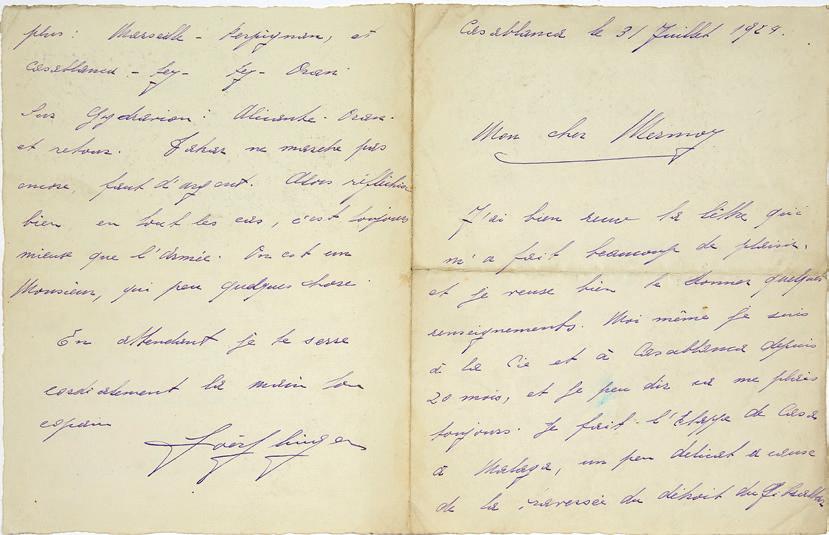 Casablanca le 31 Juillet 1924.
Mon cher Mermoz
J'ai bien reçu ta lettre qui
m'a fait beaucoup de plaisir.
et je veuse bien te donner quelques
renseignements. Moi même je suis
à la Cie et à Casablanca depuis
20 mois, et je peu dir ca me plais
toujours. Je fait l'Etappe de Casa
à Malaga, un peu délicat a cause
de la traversée du détroit du
plus: Marseille - Perpignan, et
Casablanca - Fez - Fez - Oran
Sur Hydravion: Alicante - Oran -
et retour. Dakar ne marche pas
encore, faut d'argent. Alors réflechie
bien en tout les cas, c'est toujours
mieux que l'armée. On est un
Monsieur, qui peu quelques chose.
En attendant je te serre
cordialement la main ton
copain